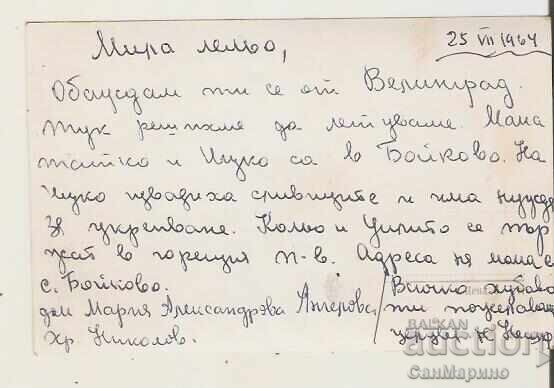 25 VII 1964
Мира лельо,
Обаждам ти се от Велинград.
Тук решихме да летуваме. Мама
татко и Ицко са в Бойково. На
Ицко извадиха сливиците и има нужда
за укрепване. Кольо и Цицито се тър
жат в горещия П-в. Адреса на мама е
с. Бойково.
дом Мария Александрова Ангелова
Хр Николов.
Всичко хубаво
ти пожелавам
целувки
BALKAN
auction
СанМарино